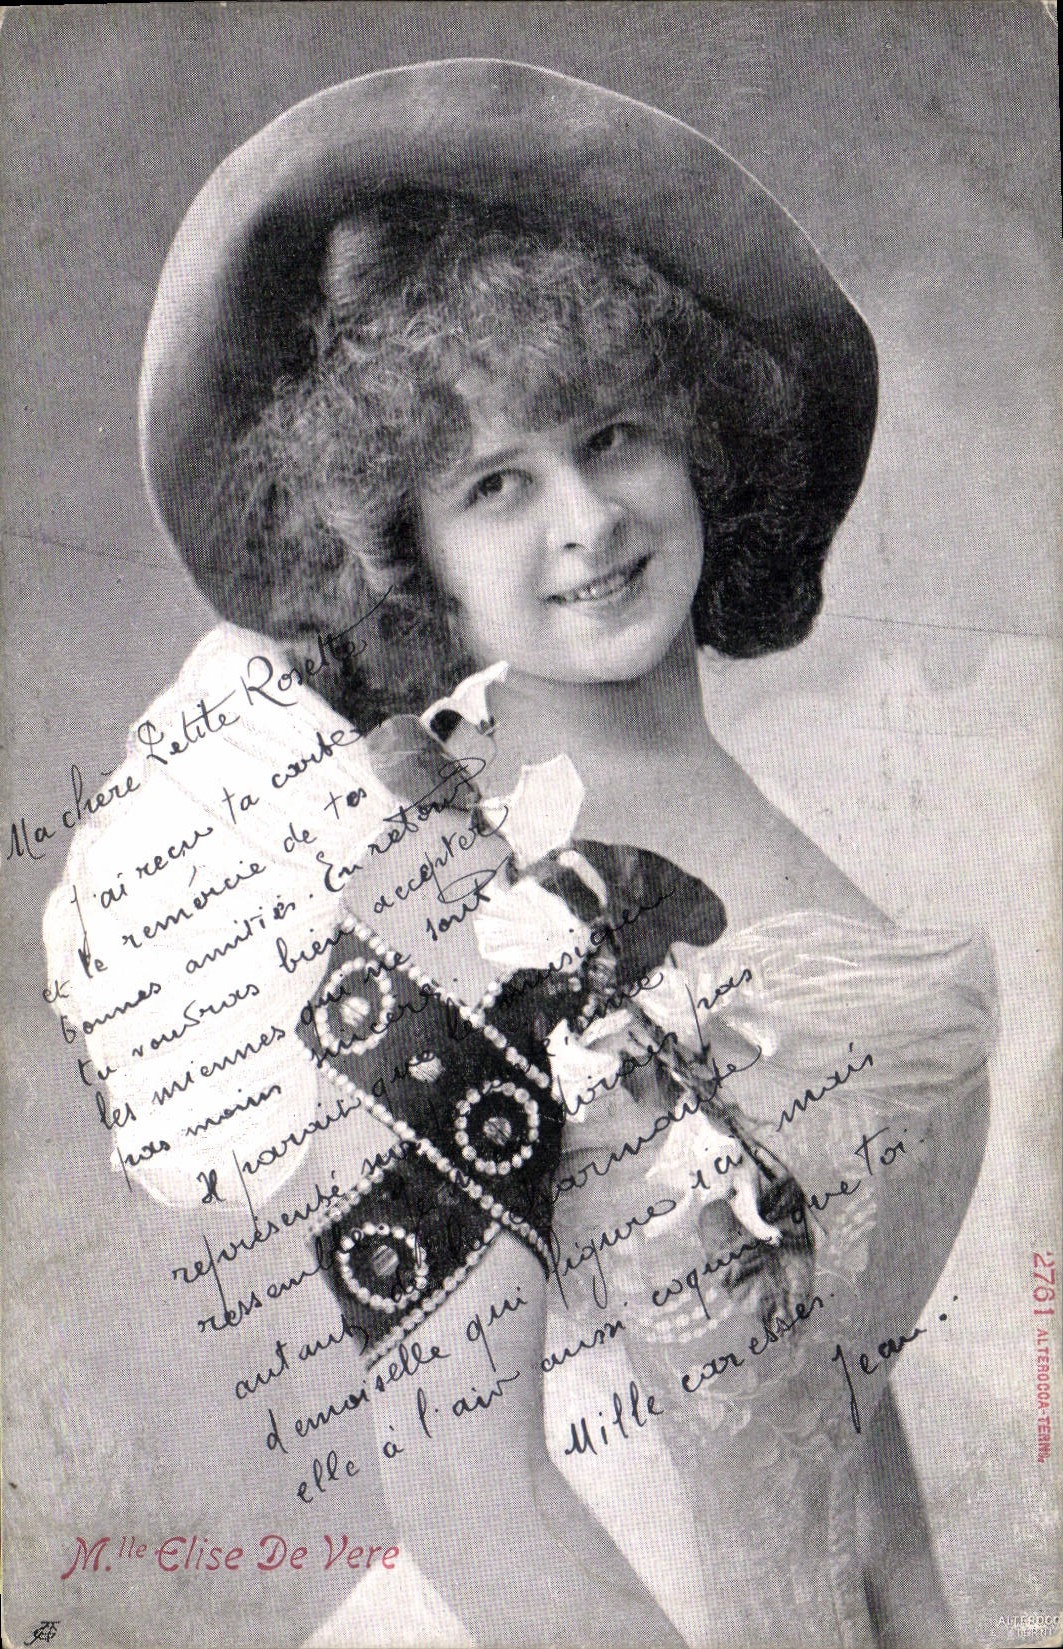 Ma chère Petite Rosette
J'ai recu ta carte
et te remercie de tes
bonnes amitiés. En retour
tu voudras bien accepter
les miennes qui ne sont
pas moins sincères.
Il parait que le musicien
représenté sur
ressemble pas
autant de la charmante
demoiselle qui figure ici mais
elle à l'air aussi coquin que toi.
Mille caresses.
Jean.
M.lle Elise De Vere
2761 ALTEROCCA-TERNI
ALTEROCCA
TERNI